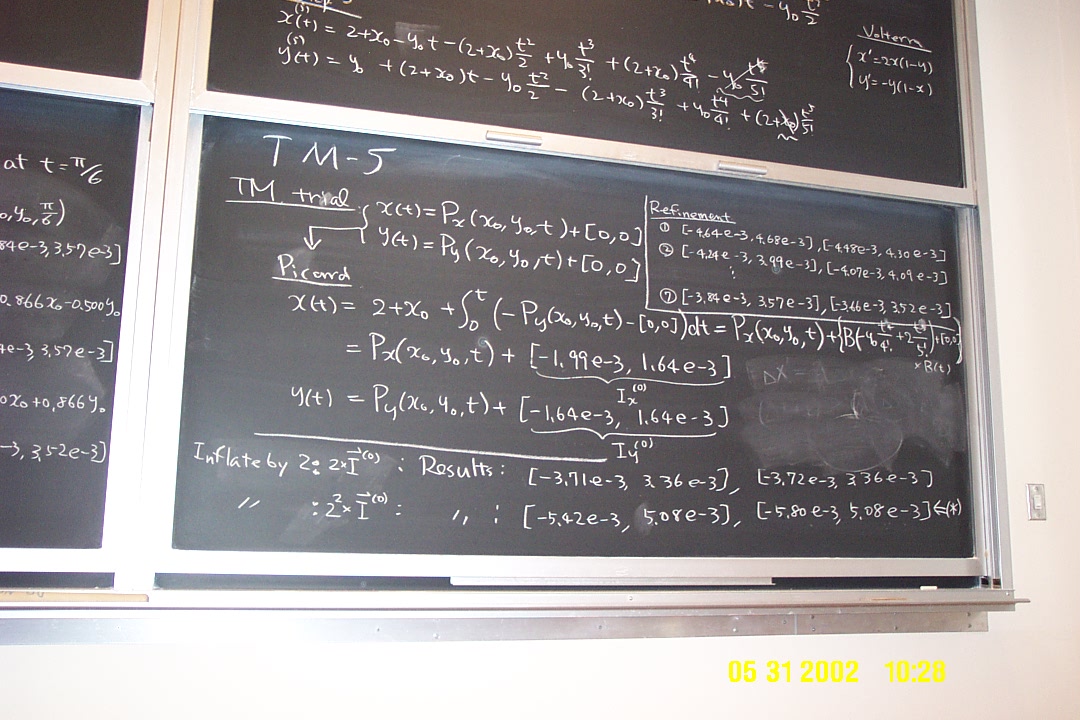 x(t)^(5) = 2+x₀-y₀t-(2+x₀)t²/2 + y₀ t³/3! + (2+x₀)t⁴/4! - y₀ t⁵/5!
y(t)^(5) = y₀ + (2+x₀)t - y₀ t²/2 - (2+x₀)t³/3! + y₀ t⁴/4! + (2+x₀)t⁵/5!
Volterra
x'=2x(1-y)
y'=-y(1-x)
at t=π/6
₀,y₀,π/6)
84e-3,3.57e-3]
0.866x₀-0.500y₀
4e-3, 3.57e-3]
0x₀+0.866y₀
-3, 3.52e-3]
TM-5
TM trial
x(t)=Px(x₀,y₀,t)+[0,0]
y(t)=Py(x₀,y₀,t)+[0,0]
Refinement
① [-4.64e-3, 4.68e-3], [-4.48e-3, 4.30e-3]
② [-4.24e-3, 3.99e-3], [-4.07e-3, 4.09e-3]
⋮
⑦ [-3.84e-3, 3.57e-3], [-3.66e-3, 3.52e-3]
Picard
x(t) = 2+x₀ + ∫₀ᵗ (-Py(x₀,y₀,t)-[0,0])dt = Px(x₀,y₀,t)+{B(-y₀ t⁴/4! +2 t⁵/5!)+[0,0]}
×B(t)
= Px(x₀,y₀,t) + [-1.99e-3, 1.64e-3]
Ix^(0)
y(t) = Py(x₀,y₀,t) + [-1.64e-3, 1.64e-3]
Iy^(0)
Inflate by 2: 2×I^(0) : Results: [-3.71e-3, 3.36e-3], [-3.72e-3, 3.36e-3]
〃 : 2²×I^(0) : 〃 : [-5.42e-3, 5.08e-3], [-5.80e-3, 5.08e-3]←(*)
05 31 2002 10:28